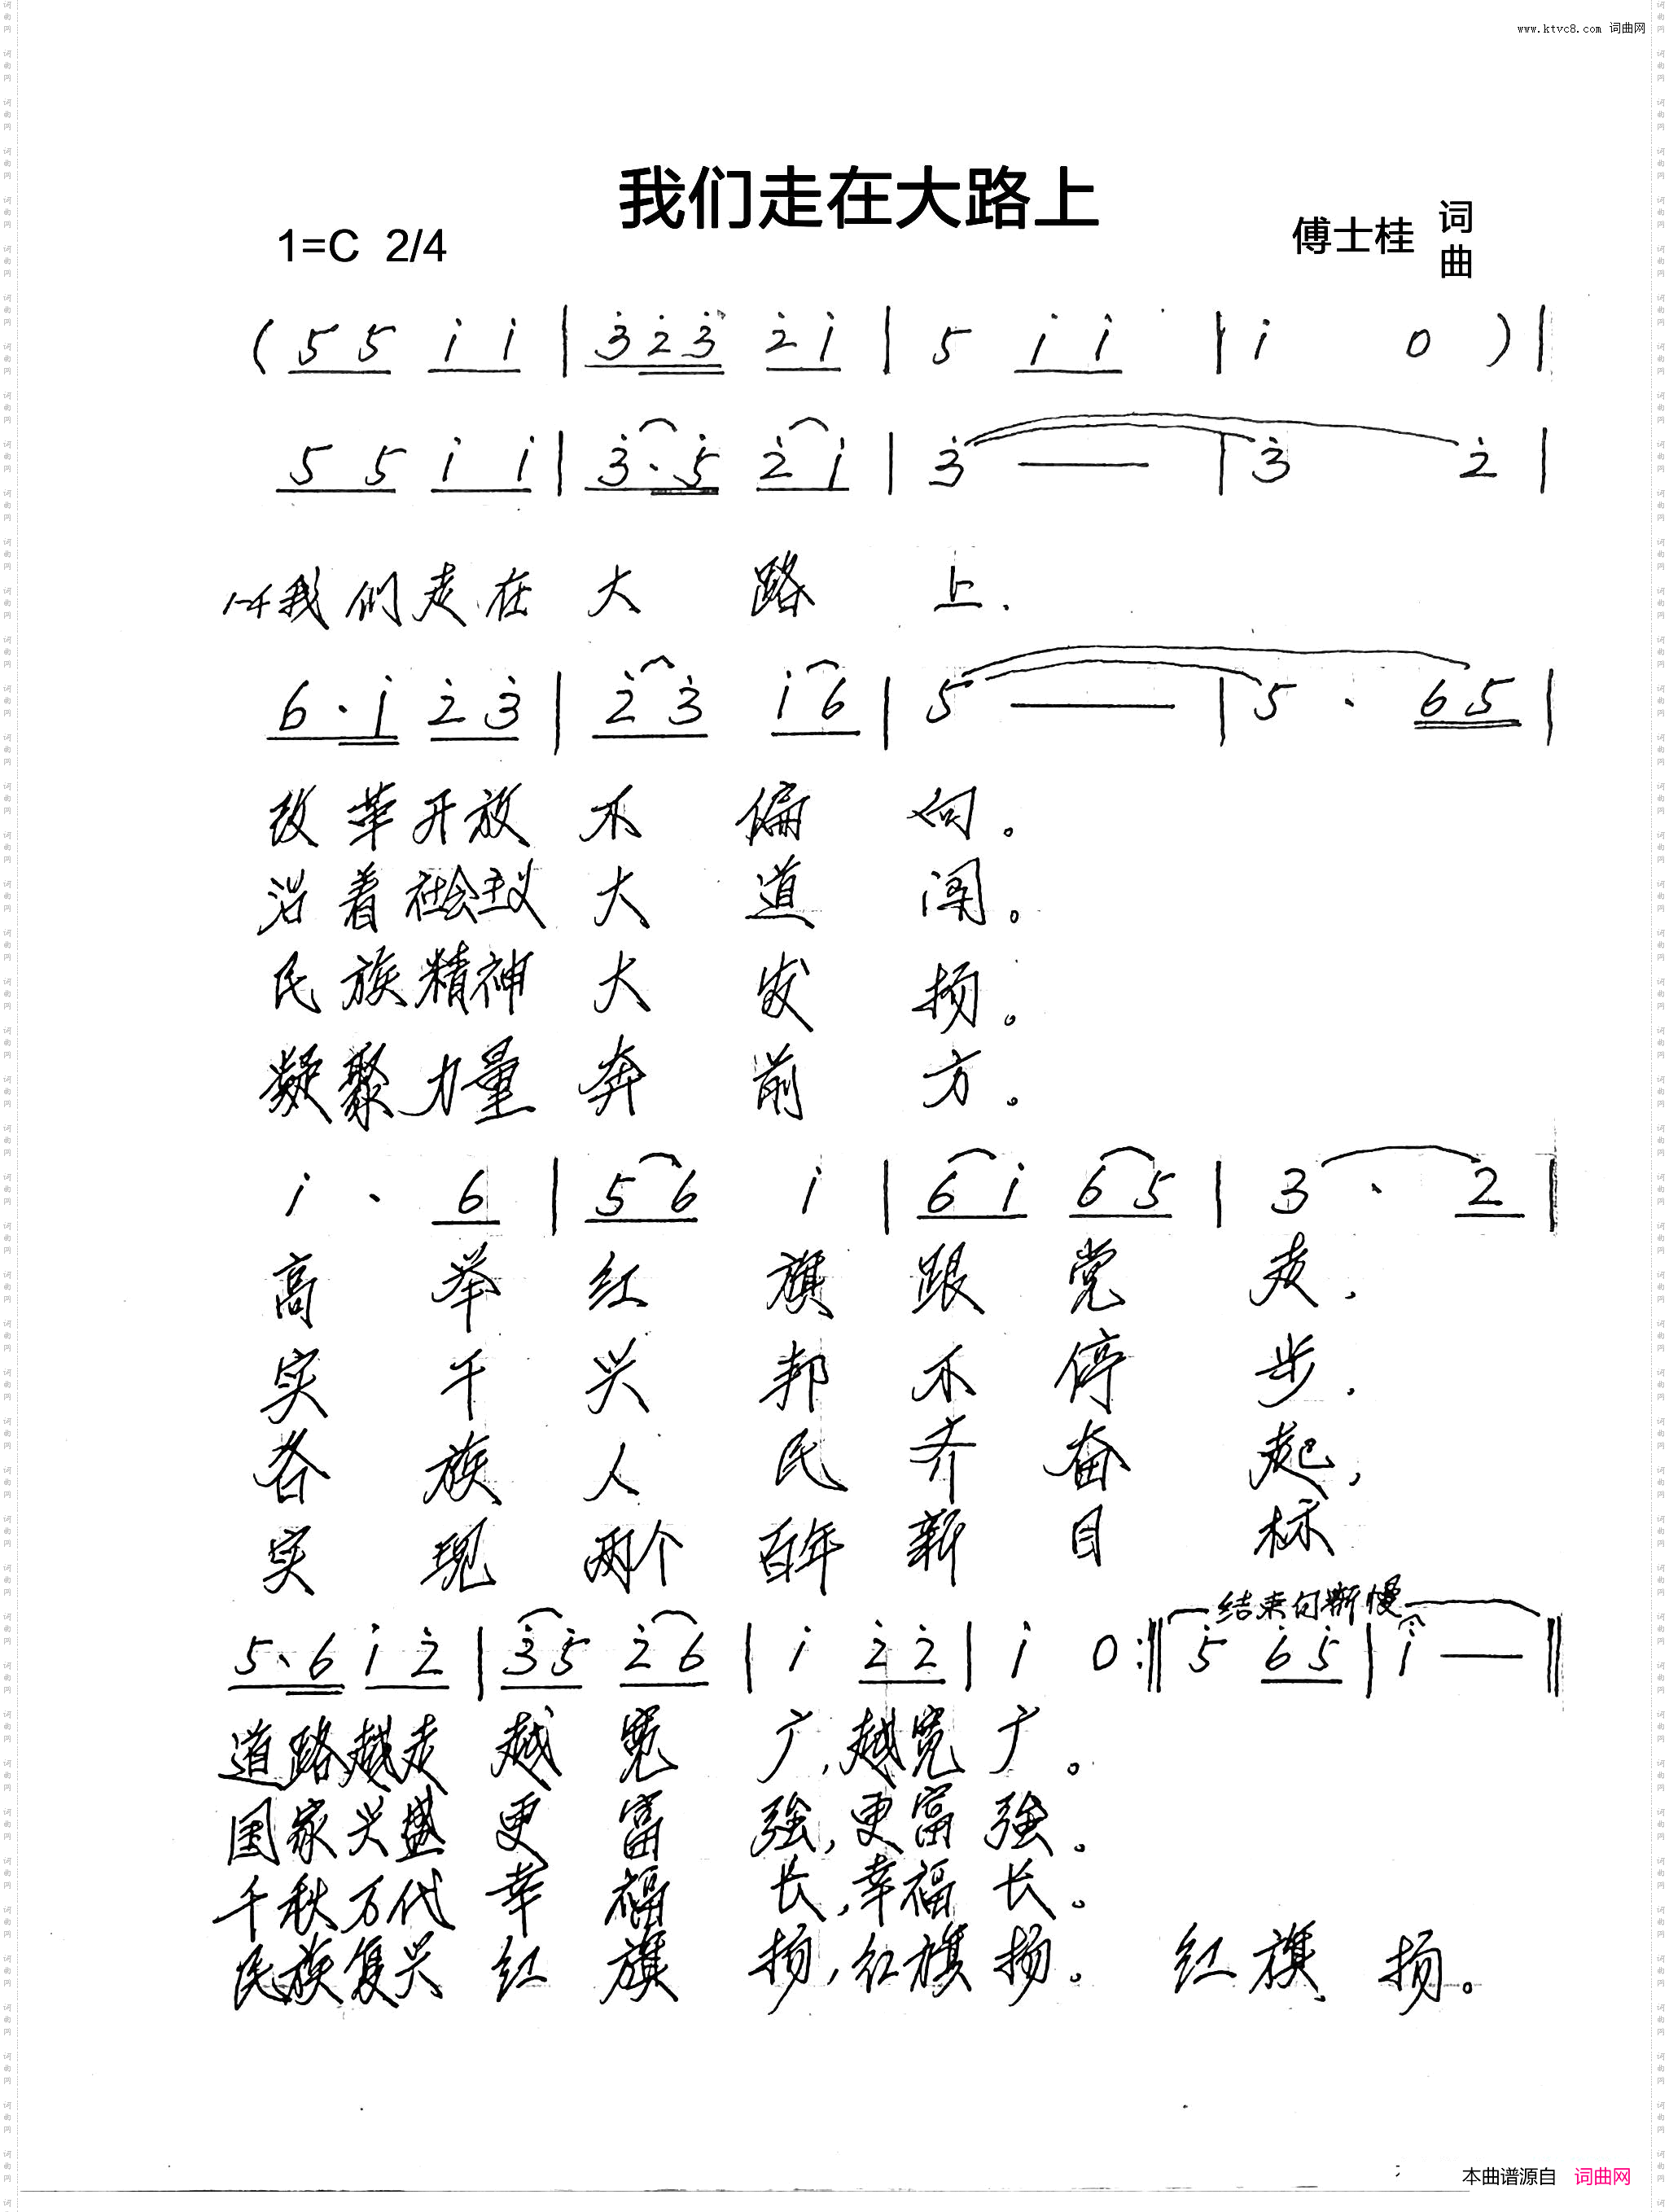 www.ktvc8.com 词曲网
我们走在大路上
1=C 2/4
傅士桂 词曲
( 5 5 i i | 3 2 3 2 i | 5 i i | i 0 ) |
5 5 i i | 3 · 5 2 i | 3 — | 3 2 |
1-4我们走在大路上.
6 · i 2 3 | 2 3 i 6 | 5 — | 5 · 6 5 |
改革开放不偏向。
沿着社会主义大道闯。
民族精神大发扬。
凝聚力量奔前方。
i · 6 | 5 6 i | 6 i 6 5 | 3 · 2 |
高举红旗跟党走,
实干兴邦不停步,
各族人民齐奋起,
实现两个百年新目标
结束句渐慢
5 · 6 i 2 | 3 5 2 6 | i 2 2 | i 0 :‖ 5 6 5 | i — ‖
道路越走越宽广,越宽广。
国家兴盛更富強,更富強。
千秋万代幸福长,幸福长。
民族复兴红旗扬,红旗扬。 红旗扬。
本曲谱源自 词曲网